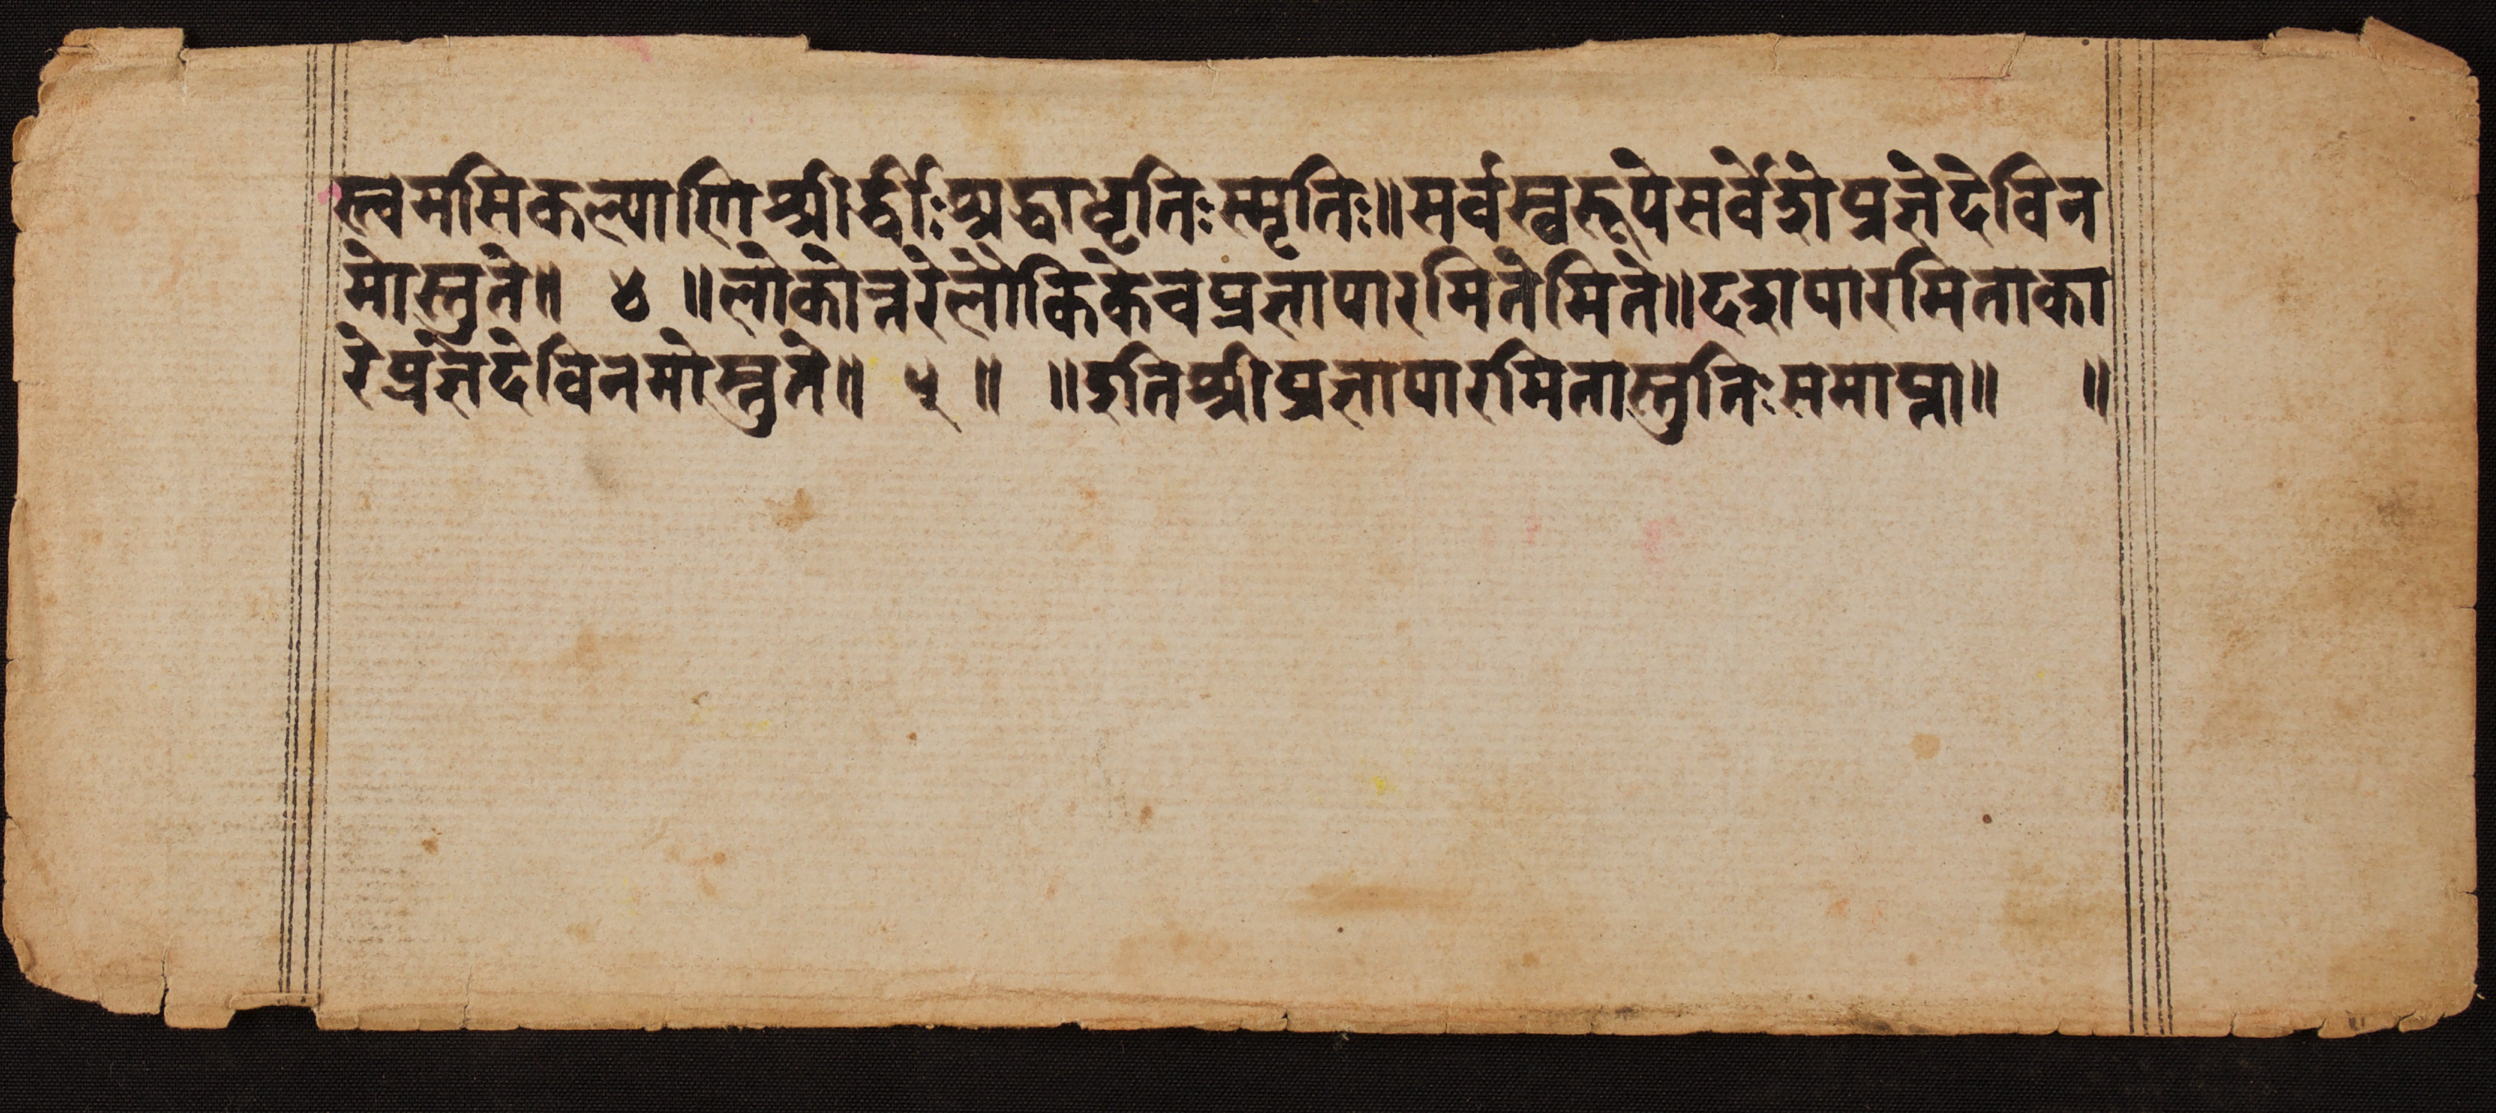 स्त्वमसिकल्पाणिश्रीर्द्धीःश्रद्धाधृतिःस्मृतिः॥सर्वस्वरूपेसर्वेशेप्रज्ञेदेविन
मोस्तुते॥ ४ ॥लोकोत्तरेलौकिकेचप्रज्ञापारमितेमिते॥दशपारमिताका
रेप्रज्ञेदेविनमोस्तुते॥ ५ ॥ ॥इतिश्रीप्रज्ञापारमितास्तुतिःसमाप्ता॥ ॥